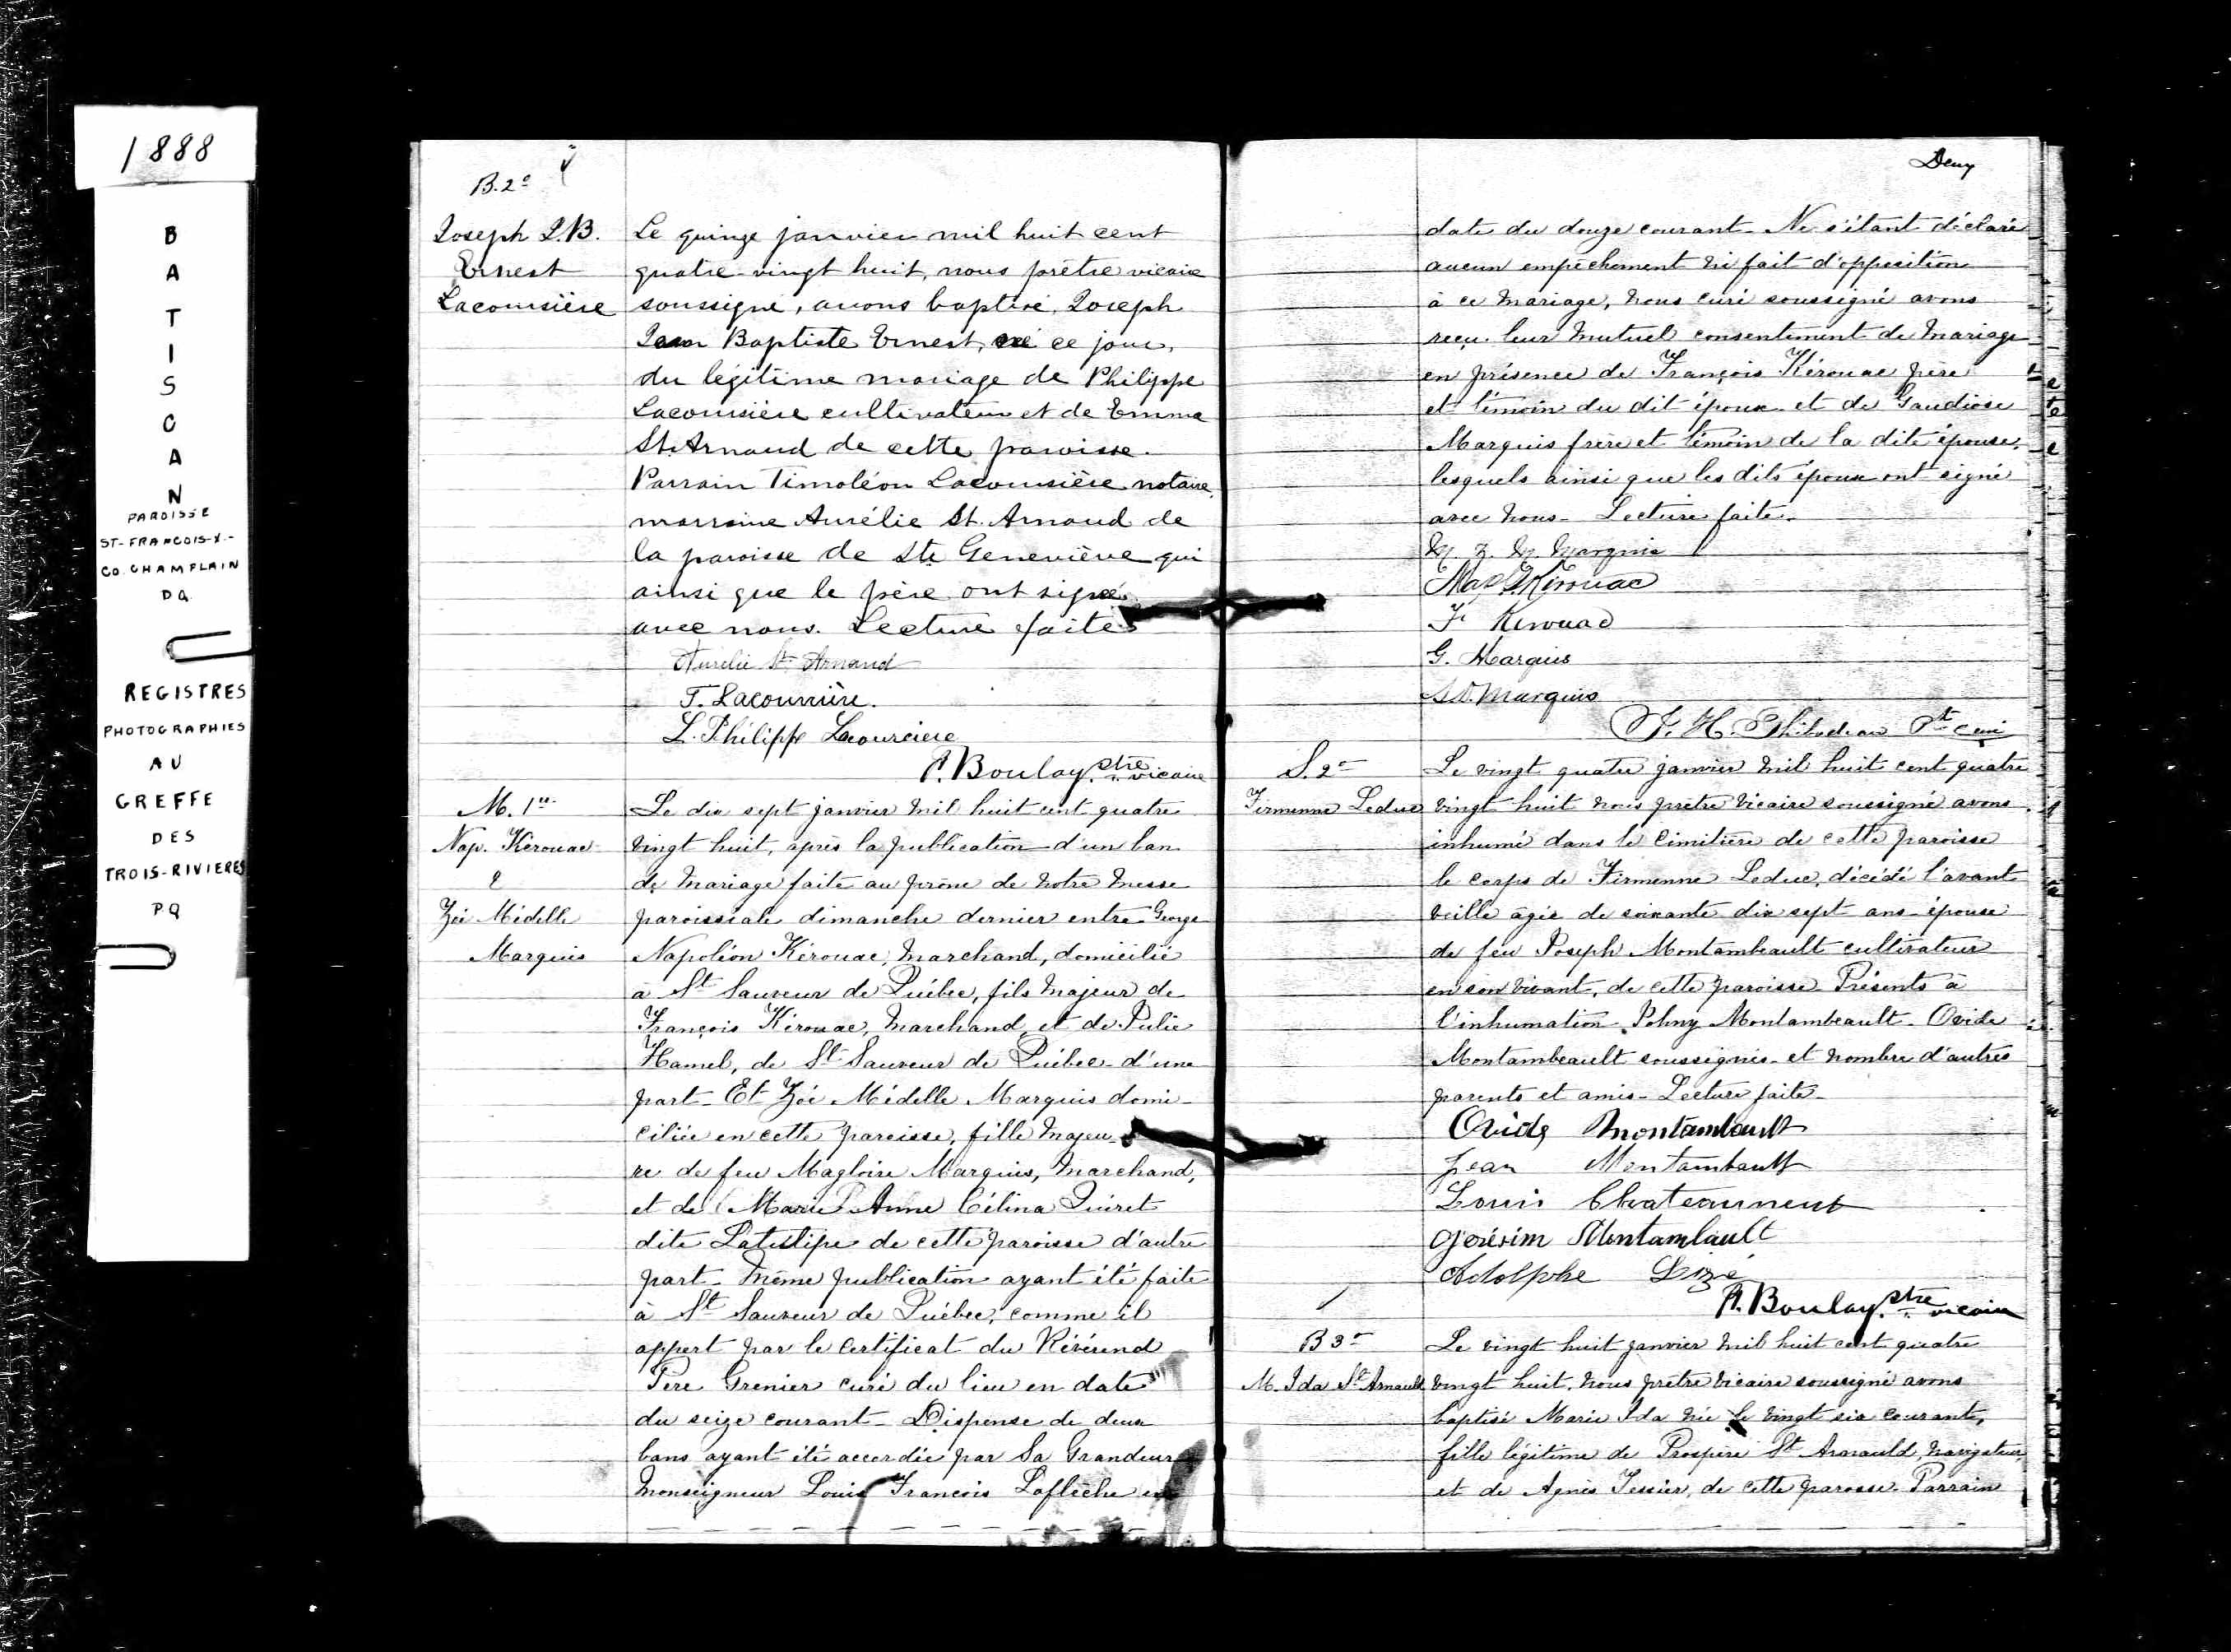 1888
B
A
T
I
S
C
A
N
PAROISSE
ST-FRANCOIS-X.-
CO. CHAMPLAIN
P.Q.
REGISTRES
PHOTOGRAPHIES
AU
GREFFE
DES
TROIS-RIVIERES
P.Q
B. 2e
Joseph J.B.
Ernest
Lacoursière
Le quinze janvier mil huit cent
quatre-vingt huit, nous prêtre vicaire
soussigné, avons baptisé, Joseph
Jean Baptiste Ernest, né ce jour,
du légitime mariage de Philippe
Lacoursière cultivateur et de Emma
St. Arnaud de cette paroisse.
Parrain Timoléon Lacoursière notaire,
marraine Aurélie St. Arnaud de
la paroisse de Ste Geneviève qui
ainsi que le père ont signé
avec nous. Lecture faite
Aurélie St Arnaud
T. Lacoursière.
L. Philippe Lacourciere
A. Boulay ptre vicaire
M. 1er
Nap. Kérouac
&
Zoé Médelle
Marquis
Le dix sept janvier mil huit cent quatre
vingt huit, après la publication d'un ban
de mariage faite au prône de notre messe
paroissiale dimanche dernier entre George
Napoléon Kérouac, marchand, domicilié
à St Sauveur de Québec, fils majeur de
François Kérouac, marchand, et de Julie
Hamel, de St Sauveur de Québec - d'une
part - Et Zoé Médelle Marquis domi-
ciliée en cette paroisse, fille majeu-
re de feu Magloire Marquis, marchand,
et de Marie Anne Célina
dite de cette paroisse d'autre
part - même publication ayant été faite
à St Sauveur de Québec, comme il
appert par le certificat du Révérend
Père Grenier curé du lieu en date
du seize courant - Dispense de deux
bans ayant été accordée par Sa Grandeur
Monseigneur Louis François Laflèche en
Deux
date du douze courant - Ne s'étant déclaré
aucun empêchement ni fait d'opposition
à ce mariage, nous curé soussigné avons
reçu leur mutuel consentement de mariage
en présence de François Kérouac père
et témoin du dit époux et de Gaudiose
Marquis frère et témoin de la dite épouse,
lesquels ainsi que les dits époux ont signé
avec nous - Lecture faite.
M. Z. M. Marquis
Nap. G. Kirouac
F. Kirouac
G. Marquis
Marquis
F. H. Thibodeau Pt curé
S. 2e
Firmenne Leduc
Le vingt quatre janvier mil huit cent quatre
vingt huit nous prêtre vicaire soussigné avons
inhumé dans le cimitière de cette paroisse
le corps de Firmenne Leduc, décédé l'avant
veille âgée de soixante dix sept ans - épouse
de feu Joseph Montambeault cultivateur
en son vivant, de cette paroisse Présents à
l'inhumation Johny Montambeault - Ovide
Montambeault soussignés - et nombre d'autres
parents et amis - Lecture faite -
Ovide Montambault
Jean Montambault
Louis Chateauneuf
Montambault
Adolphe Lizé
A. Boulay ptre vicaire
B 3e
M. Ida St Arnault
Le vingt huit janvier mil huit cent quatre
vingt huit, nous prêtre vicaire soussigné avons
baptisé Marie Ida née le vingt six courant,
fille légitime de Prospère St Arnauld, navigateur,
et de Agnès Tessier, de cette paroisse. Parrain